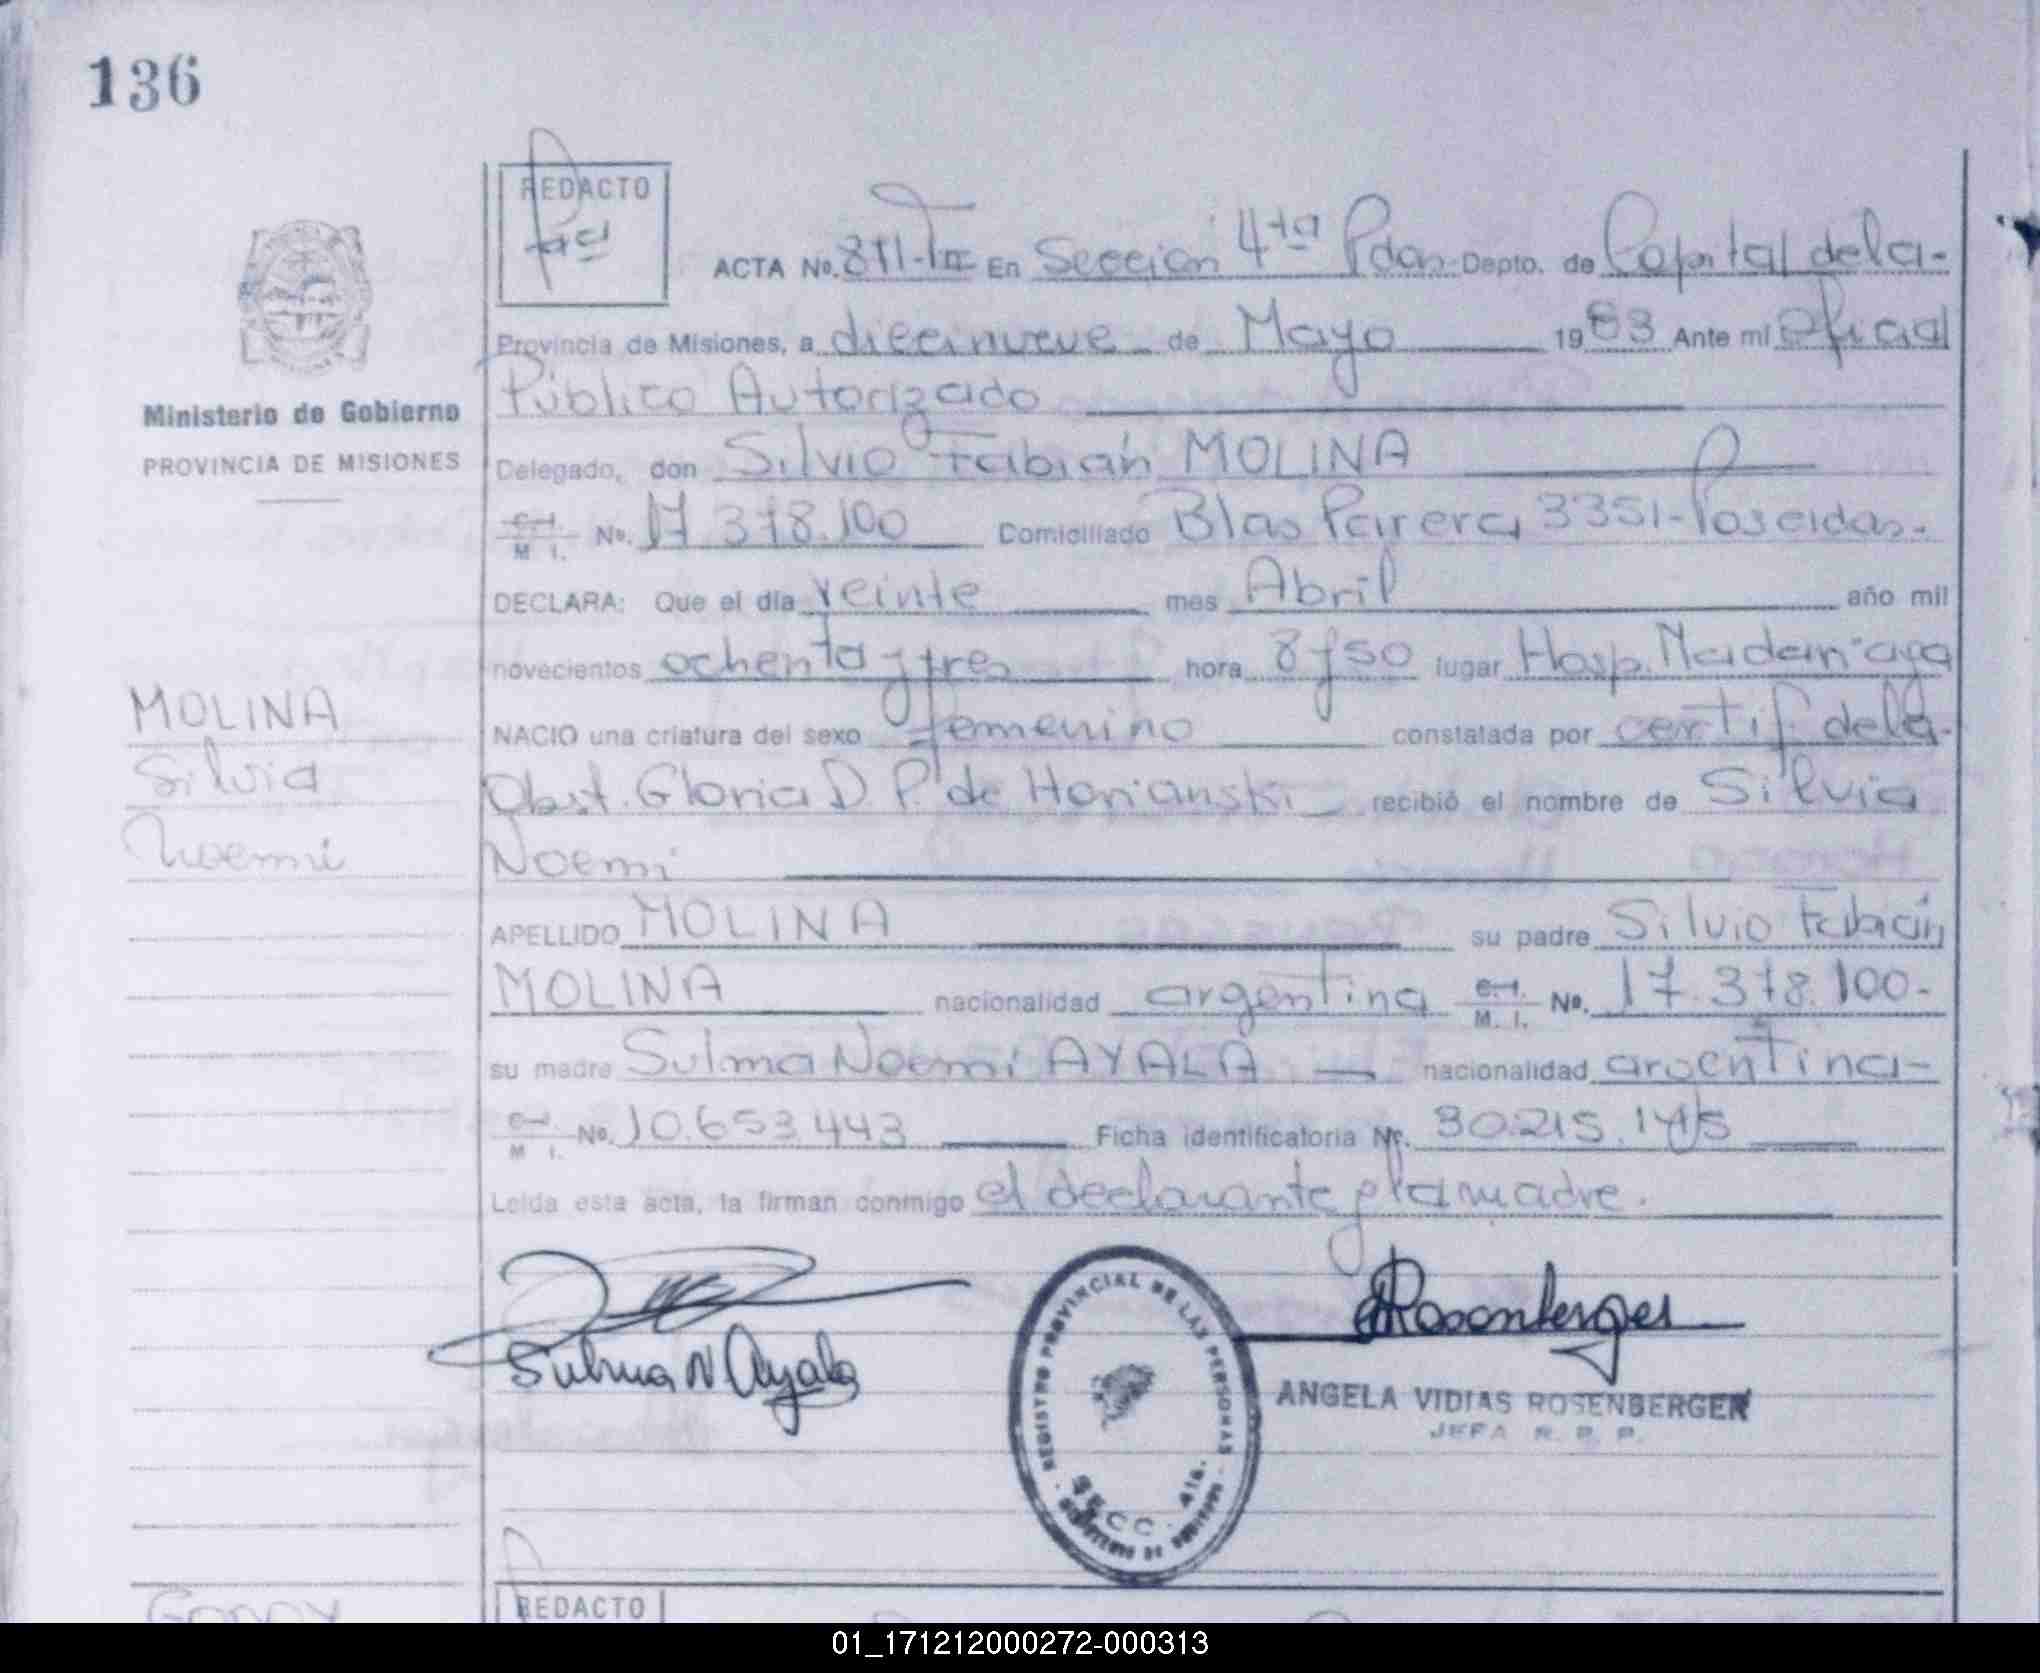 136
REDACTO
ACTA No. 811-T III En Sección 4ta Pdas. Depto. de Capital de la-
Provincia de Misiones, a diecinueve de Mayo 1983 Ante mi Oficial
Ministerio de Gobierno
Público Autorizado
PROVINCIA DE MISIONES
Delegado, don Silvio Fabián MOLINA
C.I. M I. No. 17.378.100 Domiciliado Blas Parera 3351-Posadas.
DECLARA: Que el día veinte mes Abril año mil
novecientos ochenta y tres hora 8 y 50 lugar Hosp. Madariaga
MOLINA
NACIO una criatura del sexo femenino constatada por certif. de la-
Silvia
Obst. Gloria D. P. de Horianski recibió el nombre de Silvia
Noemi
Noemi
APELLIDO MOLINA su padre Silvio Fabián
MOLINA nacionalidad argentina C.I. M. I. No. 17.378.100-
su madre Sulma Noemi AYALA nacionalidad argentina-
C.I. M I. No. 10.653.443 Ficha identificatoria Nr. 30.215.145
Leída esta acta, la firman conmigo el declarante y la madre.
Sulma N Ayala
Rosenberger
REGISTRO PROVINCIAL DE LAS PERSONAS
SECC. 4ta.
ANGELA VIDIAS ROSENBERGER
JEFA R. P. P.
GODOY
REDACTO
01_171212000272-000313